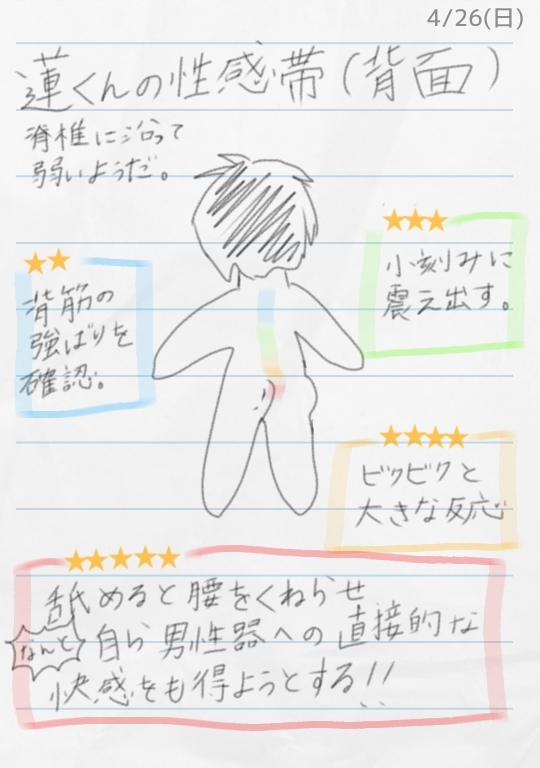 4/26(日)
蓮くんの性感帯(背面)
脊椎に沿って
弱いようだ。
★★
背筋の
強ばりを
確認。
★★★
小刻みに
震え出す。
★★★★
ビクビクと
大きな反応
★★★★★
舐めると腰をくねらせ
なんと 自ら男性器への直接的な
快感をも得ようとする!!